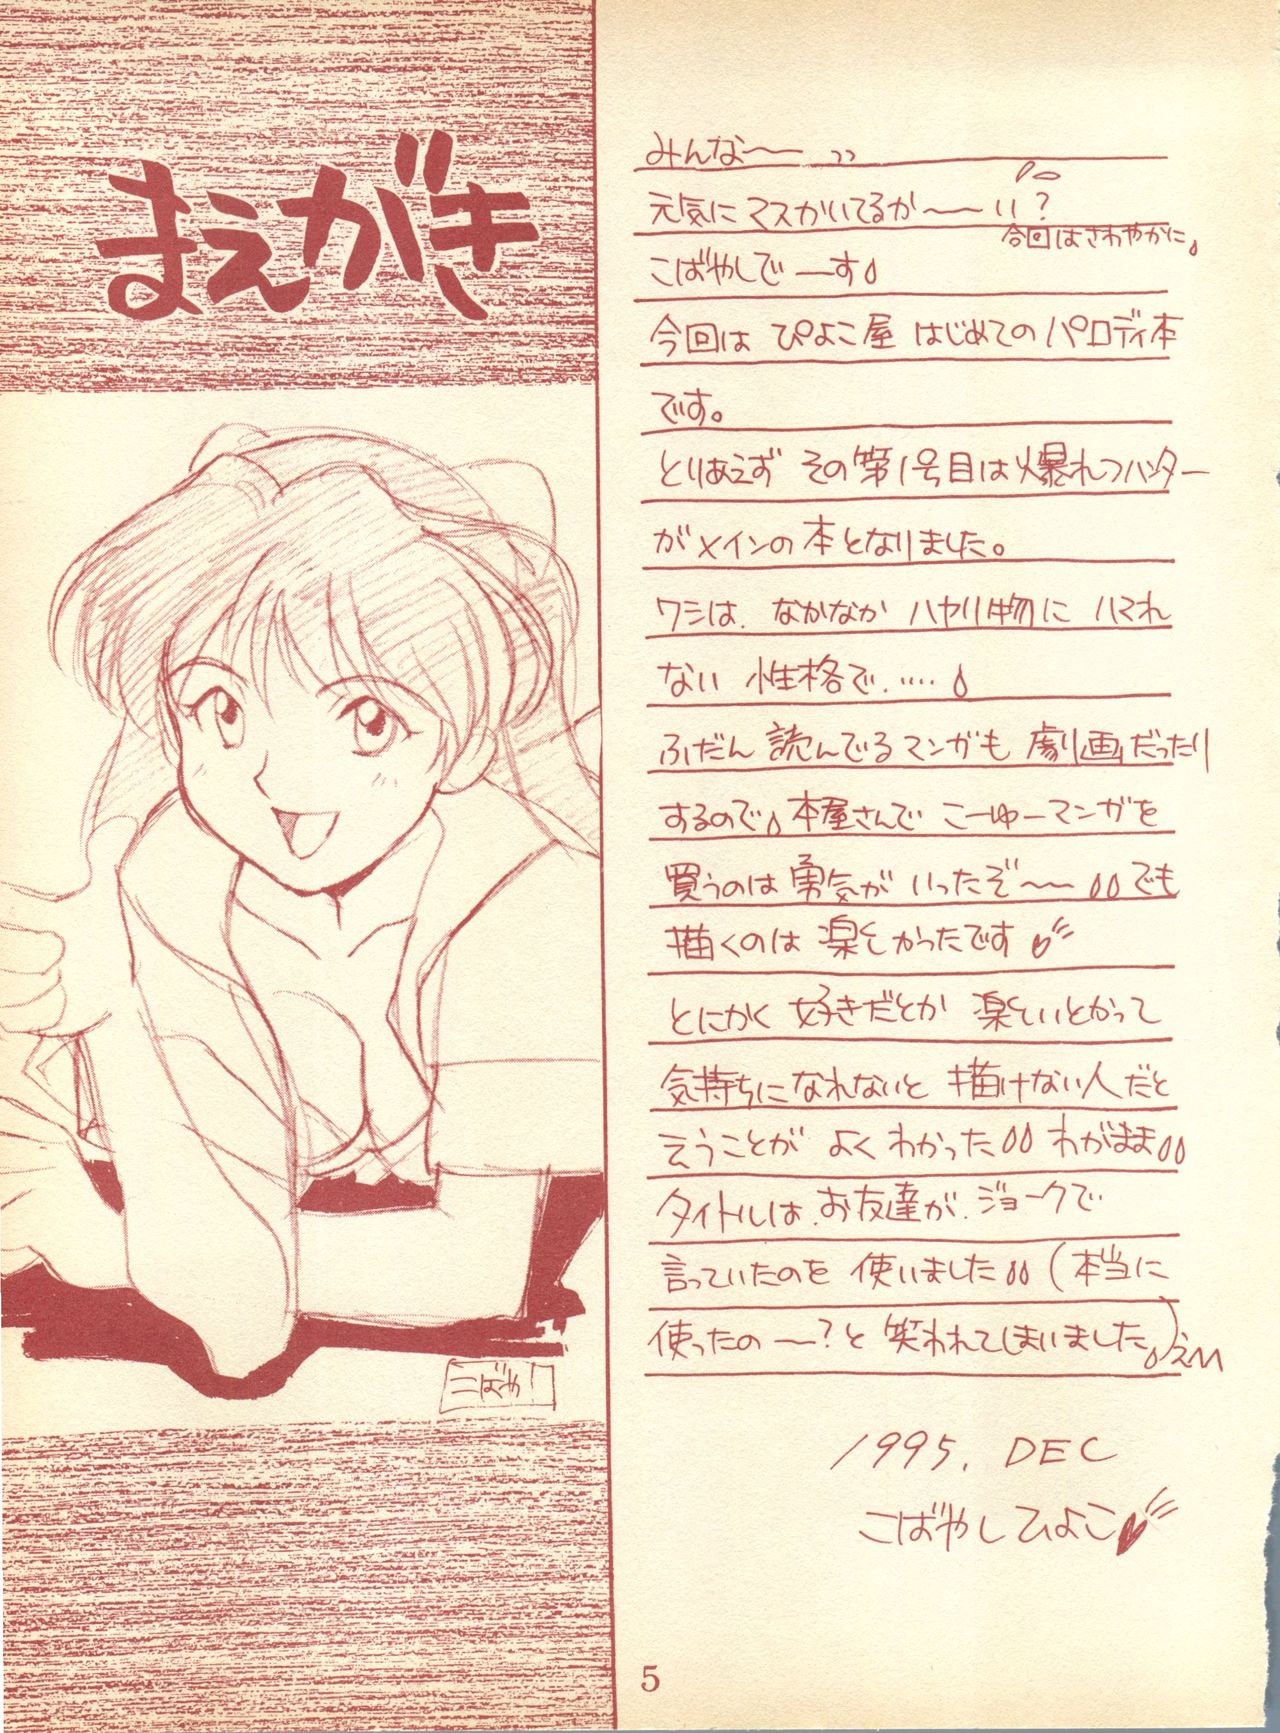 まえがき
みんな〜〜 ッッ
元気にマスかいてるか〜〜い?
今回はさわやかに。
こばやしで―す
今回は ぴよこ屋 はじめてのパロディ本
です。
とりあえず その第1号目は爆れつハンター
がメインの本となりました。
ワシは、なかなか ハヤリ物に ハマれ
ない 性格で.....
ふだん 読んでるマンガも 劇画だったり
するので 本屋さんで こーゆーマンガを
買うのは 勇気が いったぞ〜〜 でも
描くのは 楽しかったです
とにかく 好きだとか 楽しいとかって
気持ちになれないと 描けない人だと
ゆうことが よくわかった わがまま
タイトルは、お友達が、ジョークで
言っていたのを 使いました (本当に
使ったの〜〜?と 笑われてしまいました。)
こばや!
1995. DEC
こばやしひよこ
5